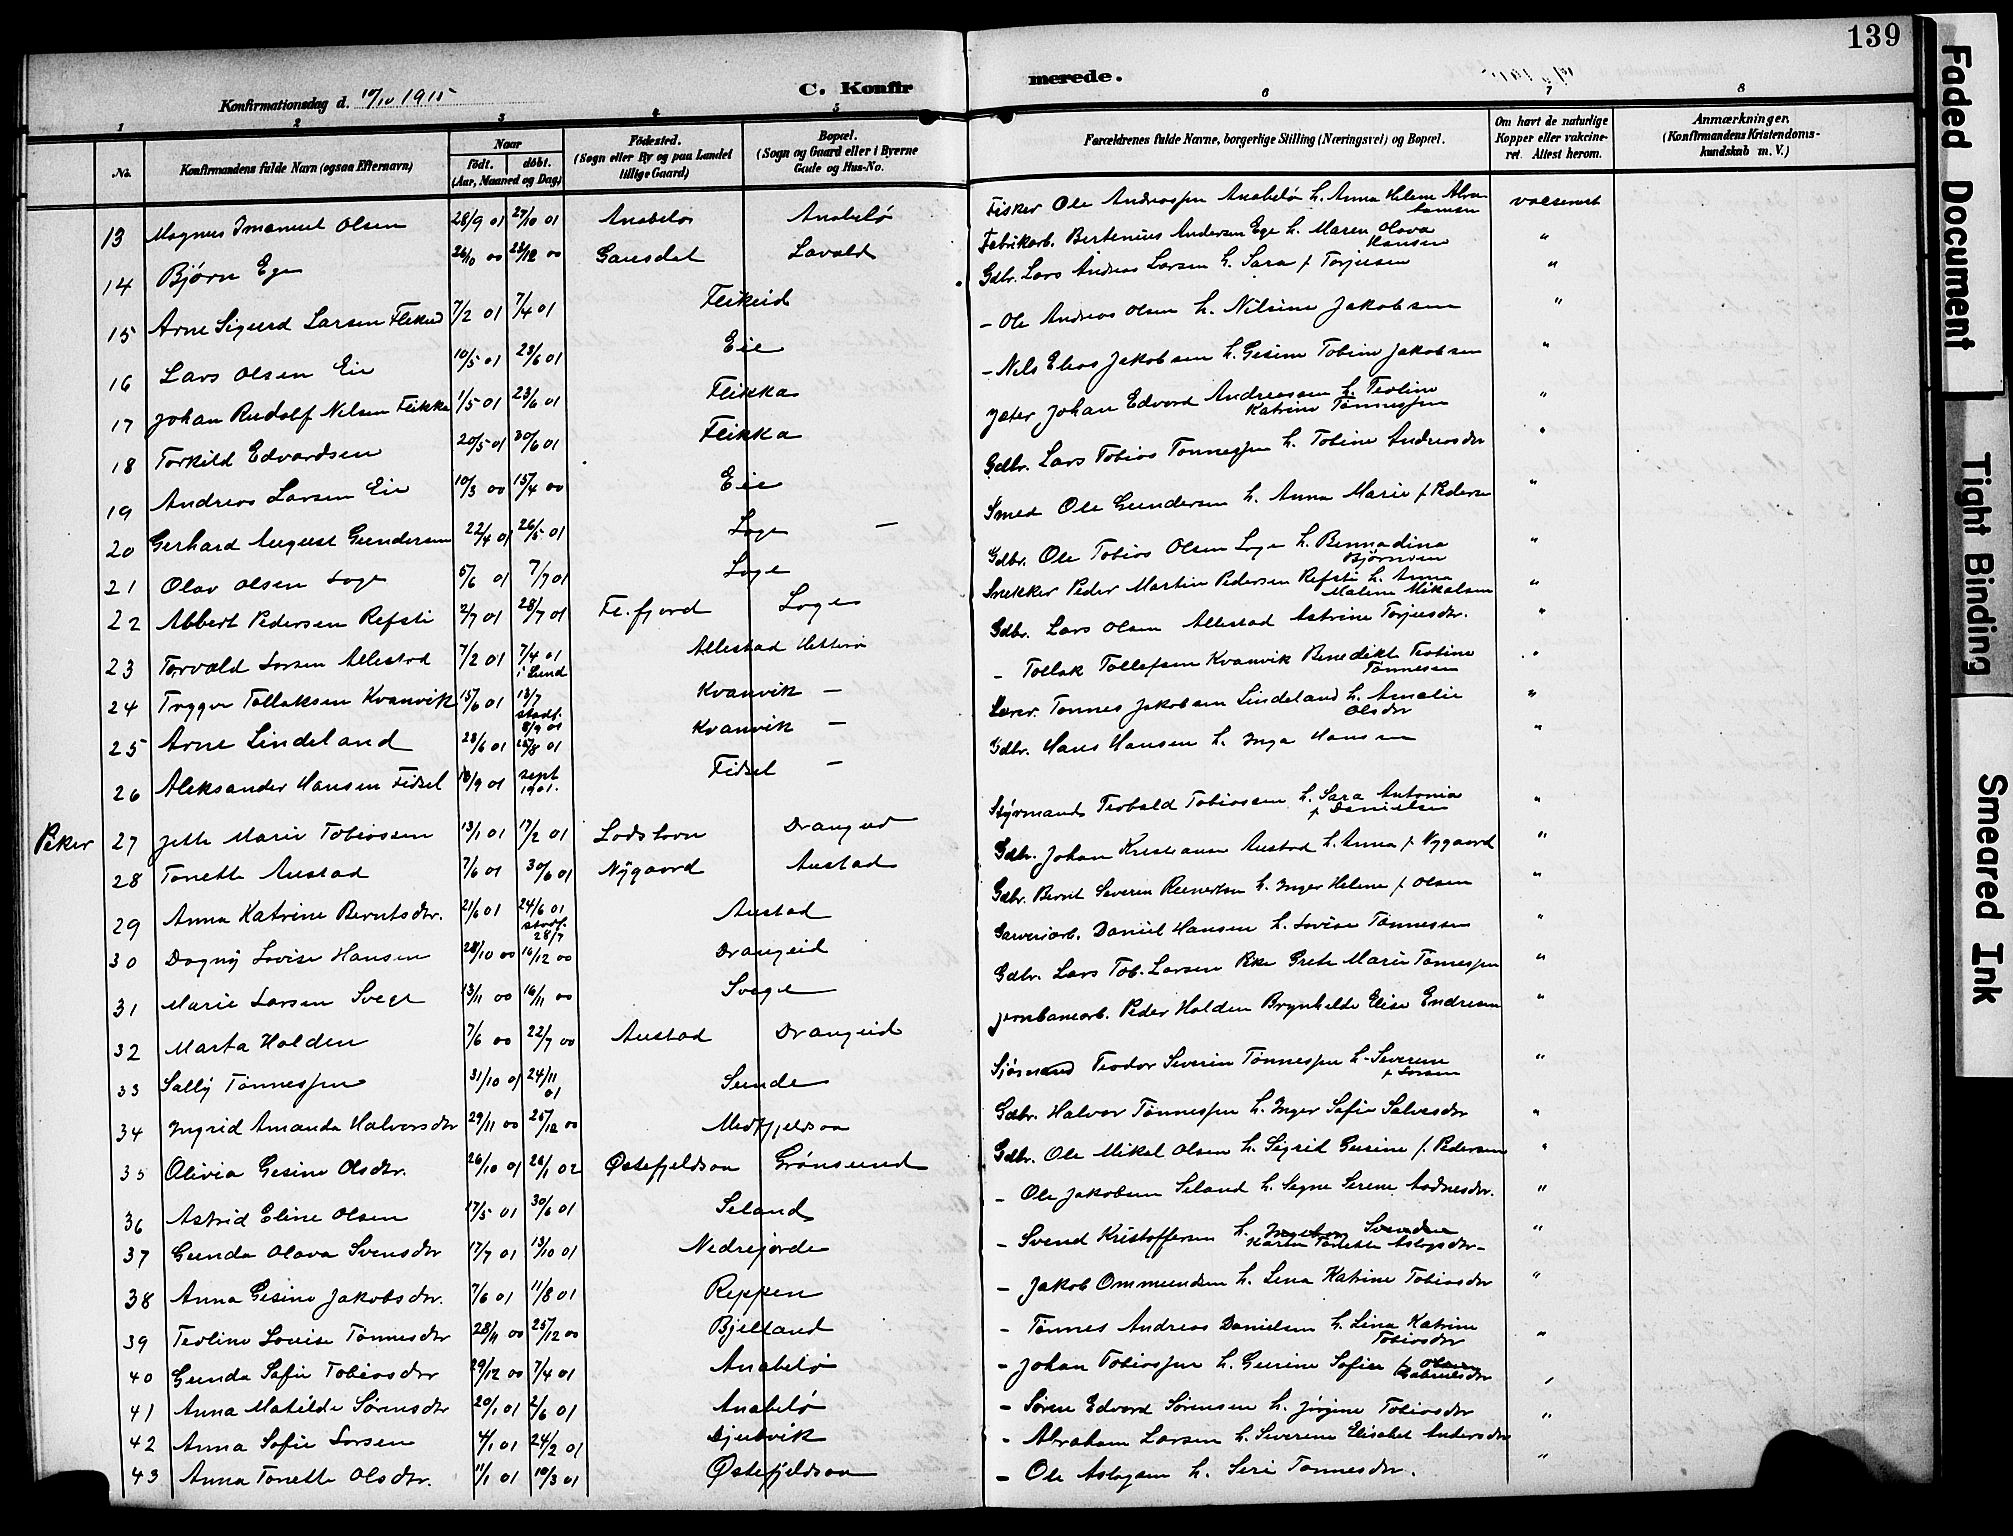 139
C. Konfirmerede.
Konfirmationsdag d. 10/10 1915
1 2 3 4 5 6 7 8
No. Konfirmandens fulde Navn (ogsaa Efternavn) Naar født. døbt. (Aar, Maaned og Dag) Fødested. (Sogn eller By og paa Landet tillige Gaard) Bopæl. (Sogn og Gaard eller i Byerne Gade og Hus-No. Forældrenes fulde Navne, borgerlige Stilling (Næringsvei) og Bopæl. Om havt de naturlige Kopper eller vakcineret. Attest herom. Anmærkninger. (Konfirmandens Kristendomskundskab m. V.)
13 Magnus Imanuel Olsen 28/9 01 27/10 01 Anabelø Anabelø Fisker Ole Andreassen Anabelø h. Anna Helene Abrahamsen
14 Bjørn Ege 26/10 00 23/12 00 Gausdal Lavold Fabrikarb. Bertenius Andersen Ege h. Maren Olava Hansen "
15 Arne Sigurd Larsen Flikeid 7/2 01 7/4 01 Flikeid Gdbr. Lars Andreas Larsen h. Sara f Torjusen "
16 Lars Olsen Eie 10/5 01 23/6 01 Eie - Ole Andreas Olsen h. Nilsine Jakobsen "
17 Johan Rudolf Nilsen Flikka 1/5 01 23/6 01 Flikka - Nils Elias Jakobsen h. Gesine Tobine Jakobsen "
18 Torkild Edvardsen 20/5 01 30/6 01 Flikka Johan Edvard Andreassen h. Teoline Katrine Tønnessen "
19 Andreas Larsen Eie 10/3 00 15/4 00 Eie Gdbr. Lars Tobias Tønnessen h. Tobine Andreasdtr "
20 Gerhard August Gundersen 22/4 01 26/5 01 Loge - Smed Ole Gundersen h. Anna Marie f Pedersen "
21 Olav Olsen Loge 5/6 01 7/7 01 Loge Gdbr. Ole Tobias Olsen Loge h. Bennadina Bjørnsen "
22 Albert Pedersen Refsti 2/7 01 28/7 01 Fl.fjord Loge Snekker Peder Martin Pedersen Refsti h. Anna Malene Mikalsen "
23 Torvald Larsen Allestad 7/2 01 7/4 01 i Lund Allestad Hitterø Gdbr. Lars Olsen Allestad Astrine Torjusdtr. "
24 Trygve Tollaksen Kvanvik 15/6 01 13/7 stadf. 8/9 01 Kvanvik - - Tollak Tollefsen Kvanvik Benedikte Teoline Tønnesen "
25 Arne Lindeland 23/6 01 25/8 01 Kvanvik - Lærer. Tønnes Jakobsen Lindeland h. Amalie Olsdtr "
26 Aleksander Hansen Fidsel 18/9 01 sept 1901. Fidsel - Gdbr. Hans Hansen h. Inga Hansen "
Piker 27 Jette Marie Tobiassen 13/1 01 17/2 01 Lodshavn Drangeid Styrmand Teobald Tobiassen h. Sara Antonia f Danielsen "
28 Tonette Austad 7/6 01 30/6 01 Nygaard Austad Gdbr. Johan Kristiansen Austad h. Anna f Nygaard "
29 Anna Katrine Berntsdtr. 21/6 01 24/6 01 stadf. 28/7 Austad Gdbr. Bernt Severin Reinertsen h. Inger Helene f Olsen "
30 Dagny Lovise Hansen 28/10 00 16/12 00 Drangeid Garveriarb. Daniel Hansen h. Lovise Tønnessen "
31 Marie Larsen Svege 13/11 00 16/11 00 Svege Gdbr. Lars Tob. Larsen Grete Marie Tønnessen "
32 Marta Halden 7/6 00 22/7 00 Austad Drangeid Jernbanearb. Peder Halden Brynhilde Elise Endresen "
33 Sally Tønnessen 31/10 01 24/11 01 Sunde Sjømand Teodor Severin Tønnessen h. Severine f Larsen "
34 Ingrid Amanda Halvorsdtr 29/11 00 25/12 00 Midtfjeldsaa Gdbr. Halvor Tønnessen h. Inger Sofie Salvesdtr "
35 Olivia Gesine Olsdtr. 26/10 01 26/1 02 Østefjeldsaa Grønsund Gdbr. Ole Mikal Olsen h. Sigrid Gursine f. Pedersen "
36 Astrid Eline Olsen 17/5 01 30/6 01 Seland - Ole Jakobsen Seland h. Signe Serene Aadnesdtr. "
37 Gunda Olava Svensdtr 17/7 01 13/10 01 Nedrejorde - Svend Kristoffersen h. Karen Tonette Aslagsdtr- "
38 Anna Gesine Jakobsdtr. 7/6 01 11/8 01 Reppen - Jakob Ommundsen h. Lena Katrine Tobiasdtr "
39 Teoline Louise Tønnesdtr 28/11 00 25/12 00 Bjelland - Tønnes Andreas Danielsen h. Lina Katrine Tobiasdtr "
40 Gunda Sofie Tobiasdtr 29/12 00 7/4 01 Anabelø - Johan Tobiassen h. Gursine Sofie f Gabrielsdtr "
41 Anna Matilde Sørensdtr 20/1 01 2/6 01 Anabelø - Søren Edvard Sørensen h. Jørgine Tobiasdtr "
42 Anna Sofie Larsen 4/1 01 24/2 01 Djubvik - Abraham Larsen h. Severine Elisabet Andersdtr
43 Anna Tonette Olsdtr. 11/1 01 10/3 01 Østefjeldsaa - Ole Aslagsen h. Siri Tønnesdtr. "
Faded Document
Tight Binding
Smeared Ink